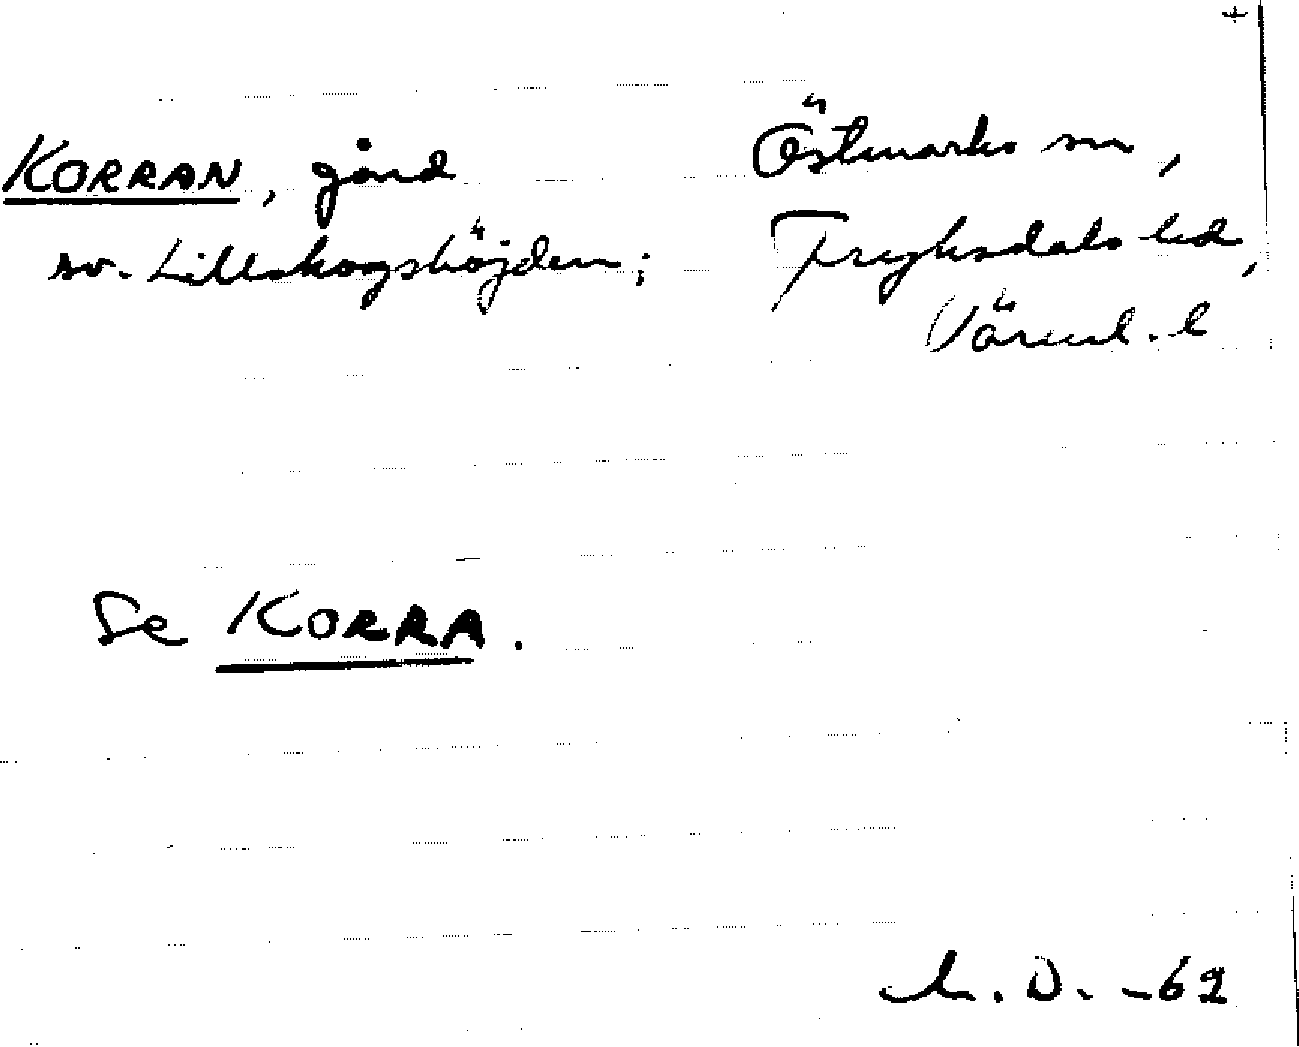 KORRAN, gård Östmarks sn,
sv. Lillskogshöjden; Fryksdals hd,
Värml. l
Se KORRA.
L. D. -62